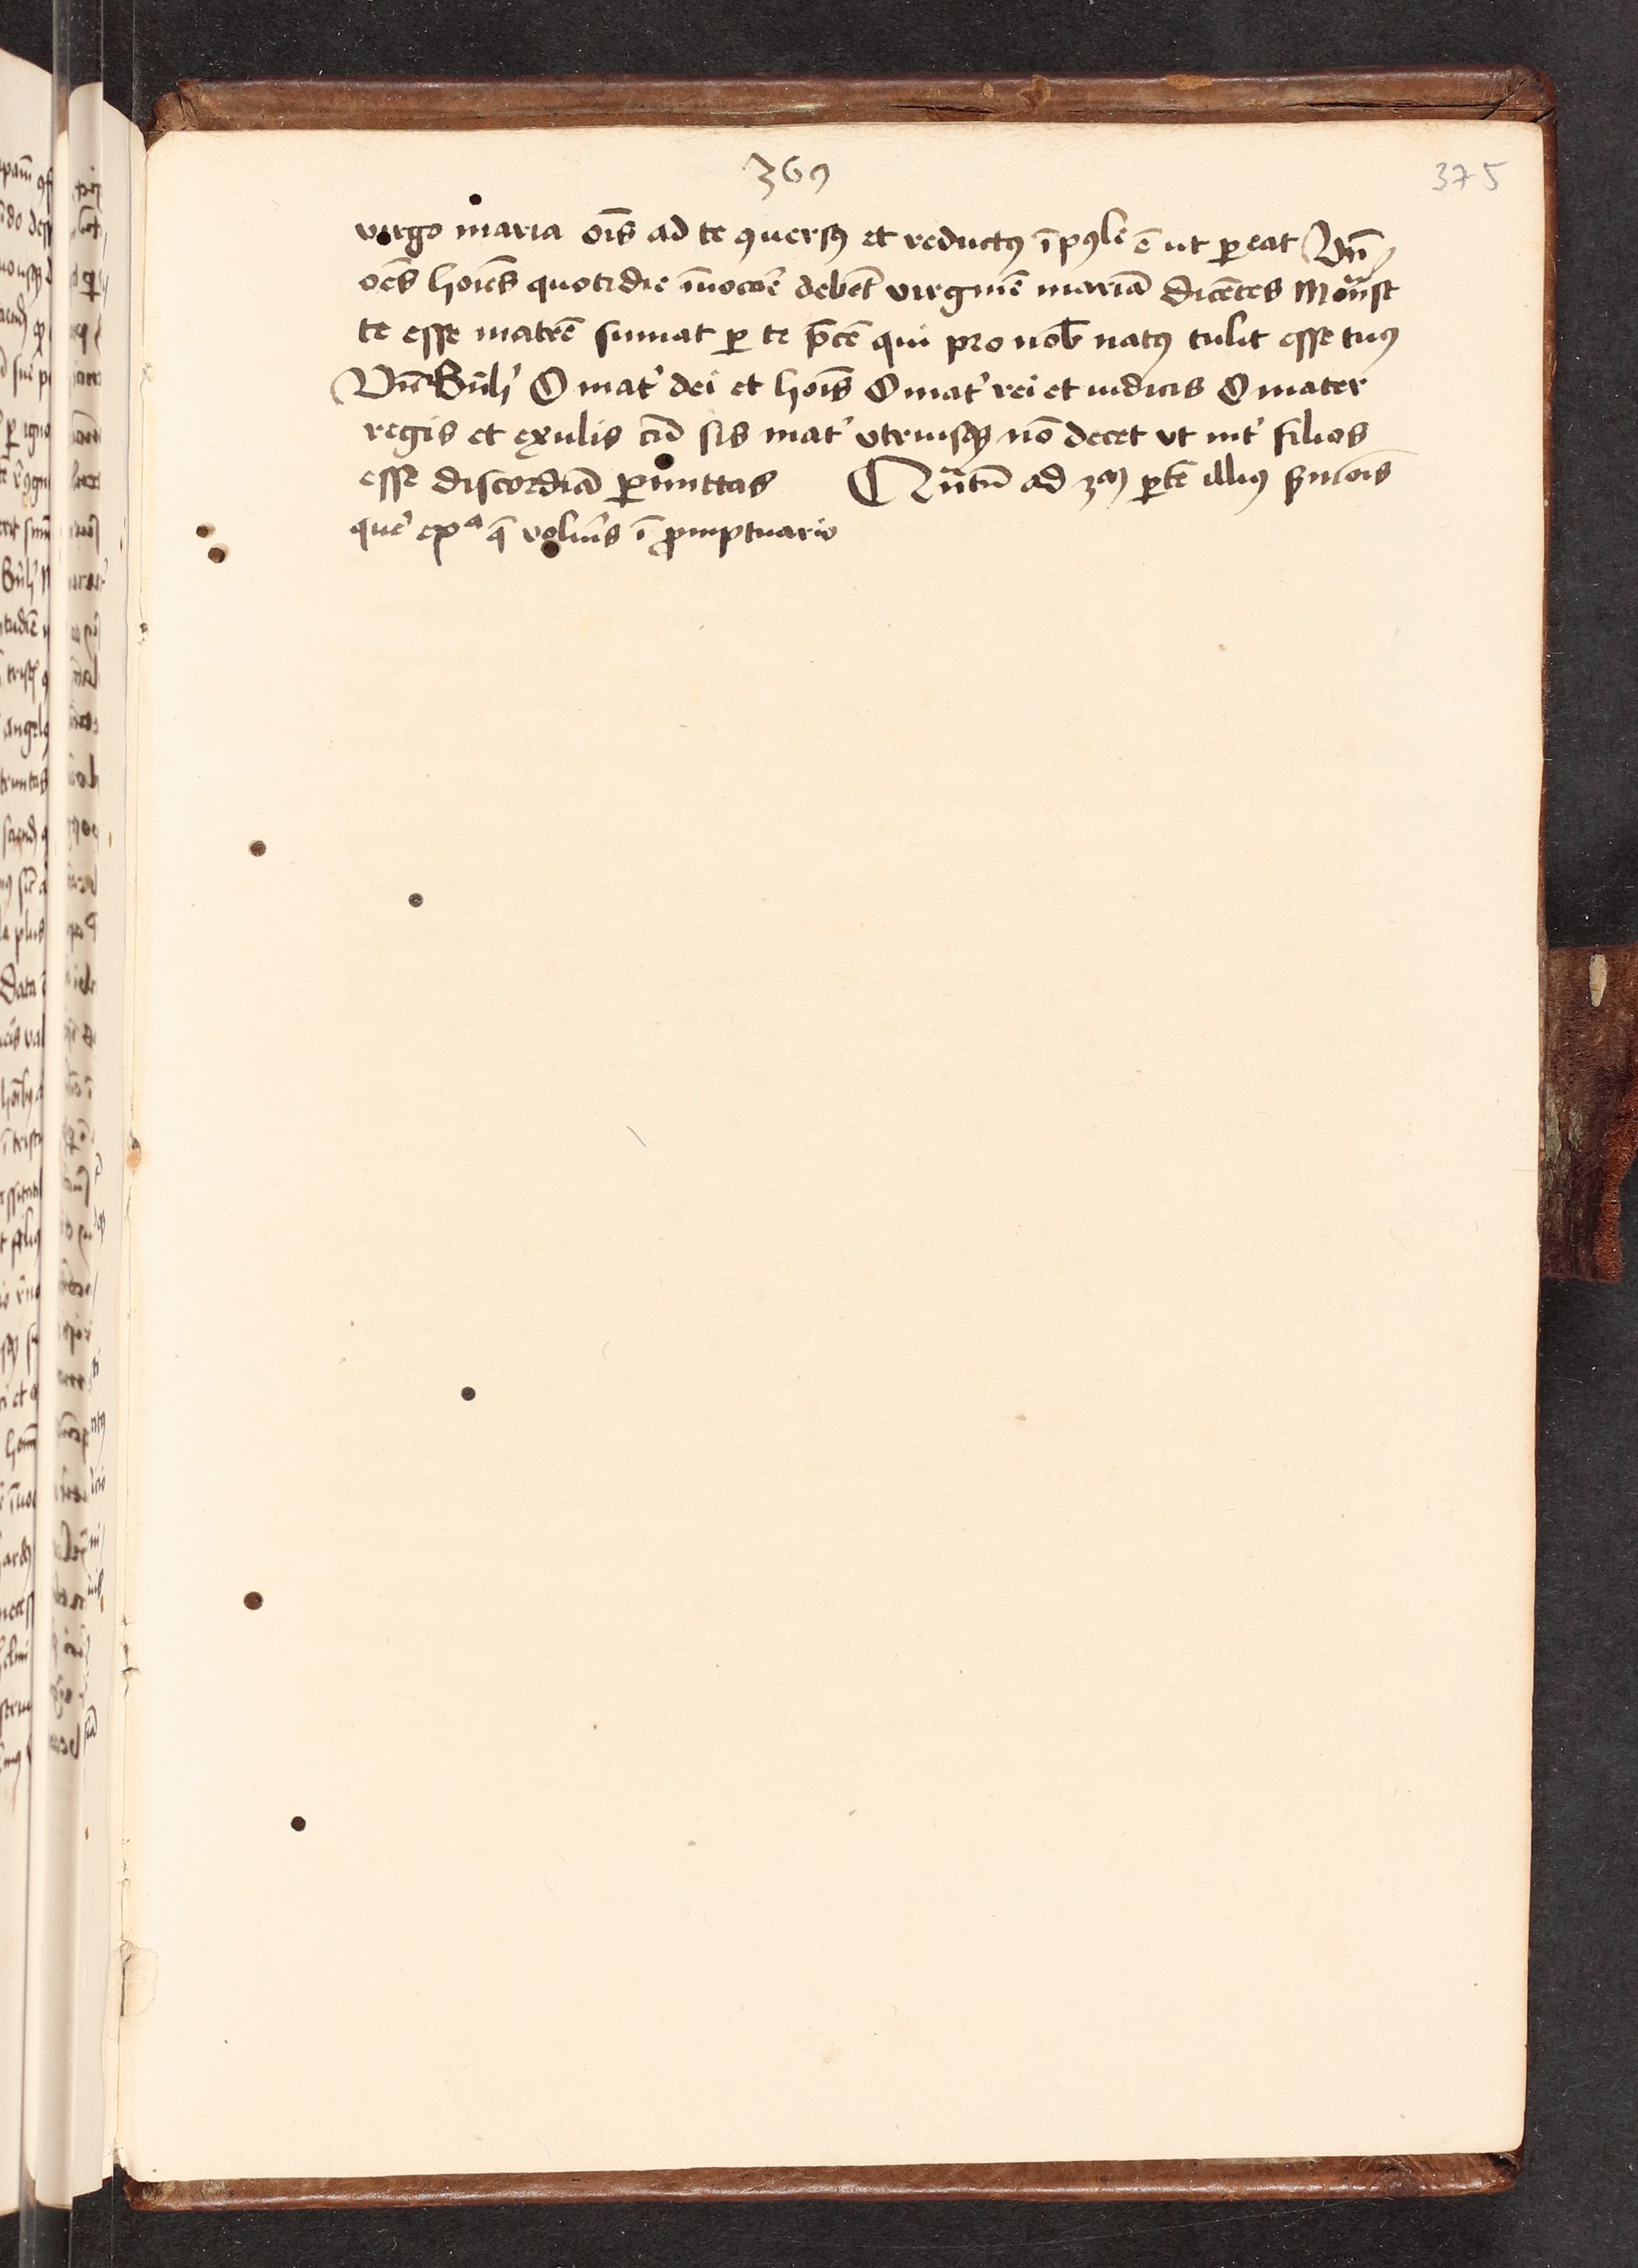 369
375
virgo maria oīs ad te ꝯuersꝰ et reductꝰ īpꝰle ē ut ꝑeat Vn̄
oēs hoīes quotidie īuocare debēt virginē mariā dicētes Monst
te esse matrē sumat ꝑ te p̄cē qui pro nob̄ natꝰ tulit esse tuꝰ
Vn̄ O mat᷑ dei et hoīs O mat᷑ rei et iudicis O mater
regis et exulis cū sis mat᷑ vtriusqꝫ nō decet vt int᷑ filios
esse discordiā ꝑmittas Qn̄tū ad 3am ꝑtē illiꝰ ẜmōis
que᷑ exa q̄ volu᷑is ī ꝓmptuario